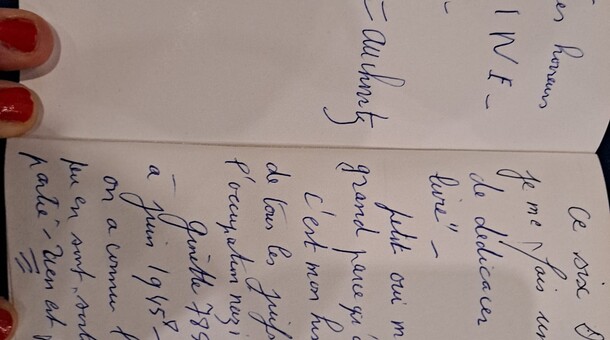 horreurs
INE -
-
- auchwitz
Ce six
je me fais un
de dédicacer
livre" -
petit oui m
grand parce q
c'est mon his
de tous les juifs
l'occupation nazi
- ginette 785
a juin 1945 -
on a connu
peu en sont sort
parlé - rien est